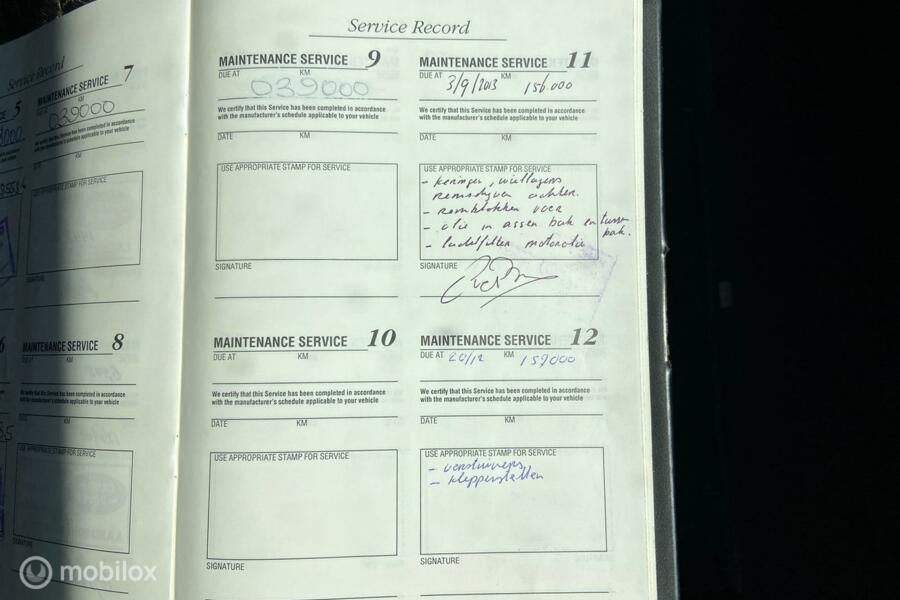 Service Record
MAINTENANCE SERVICE 7
KM
039000
We certify that this Service has been completed in accordance
with the manufacturer's schedule applicable to your vehicle
KM
USE APPROPRIATE STAMP FOR SERVICE
SIGNATURE
MAINTENANCE SERVICE 8
DUE AT KM
We certify that this Service has been completed in accordance
with the manufacturer's schedule applicable to your vehicle
DATE KM
USE APPROPRIATE STAMP FOR SERVICE
SIGNATURE
Service Record
MAINTENANCE SERVICE 9
DUE AT KM
039000
We certify that this Service has been completed in accordance
with the manufacturer's schedule applicable to your vehicle
DATE KM
USE APPROPRIATE STAMP FOR SERVICE
SIGNATURE
MAINTENANCE SERVICE 10
DUE AT KM
We certify that this Service has been completed in accordance
with the manufacturer's schedule applicable to your vehicle
DATE KM
USE APPROPRIATE STAMP FOR SERVICE
SIGNATURE
MAINTENANCE SERVICE 11
DUE AT 3/9/2013 KM 156.000
We certify that this Service has been completed in accordance
with the manufacturer's schedule applicable to your vehicle
DATE KM
USE APPROPRIATE STAMP FOR SERVICE
- keringen, wiellagers
remschyven achter.
- remblokken voor
- olie in assen bak en tussen
bak.
- luchtfilter motorolie
SIGNATURE
MAINTENANCE SERVICE 12
DUE AT 20/12 KM 157000
We certify that this Service has been completed in accordance
with the manufacturer's schedule applicable to your vehicle
DATE KM
USE APPROPRIATE STAMP FOR SERVICE
- verstuivers
- kleppenstellen
SIGNATURE
mobilox